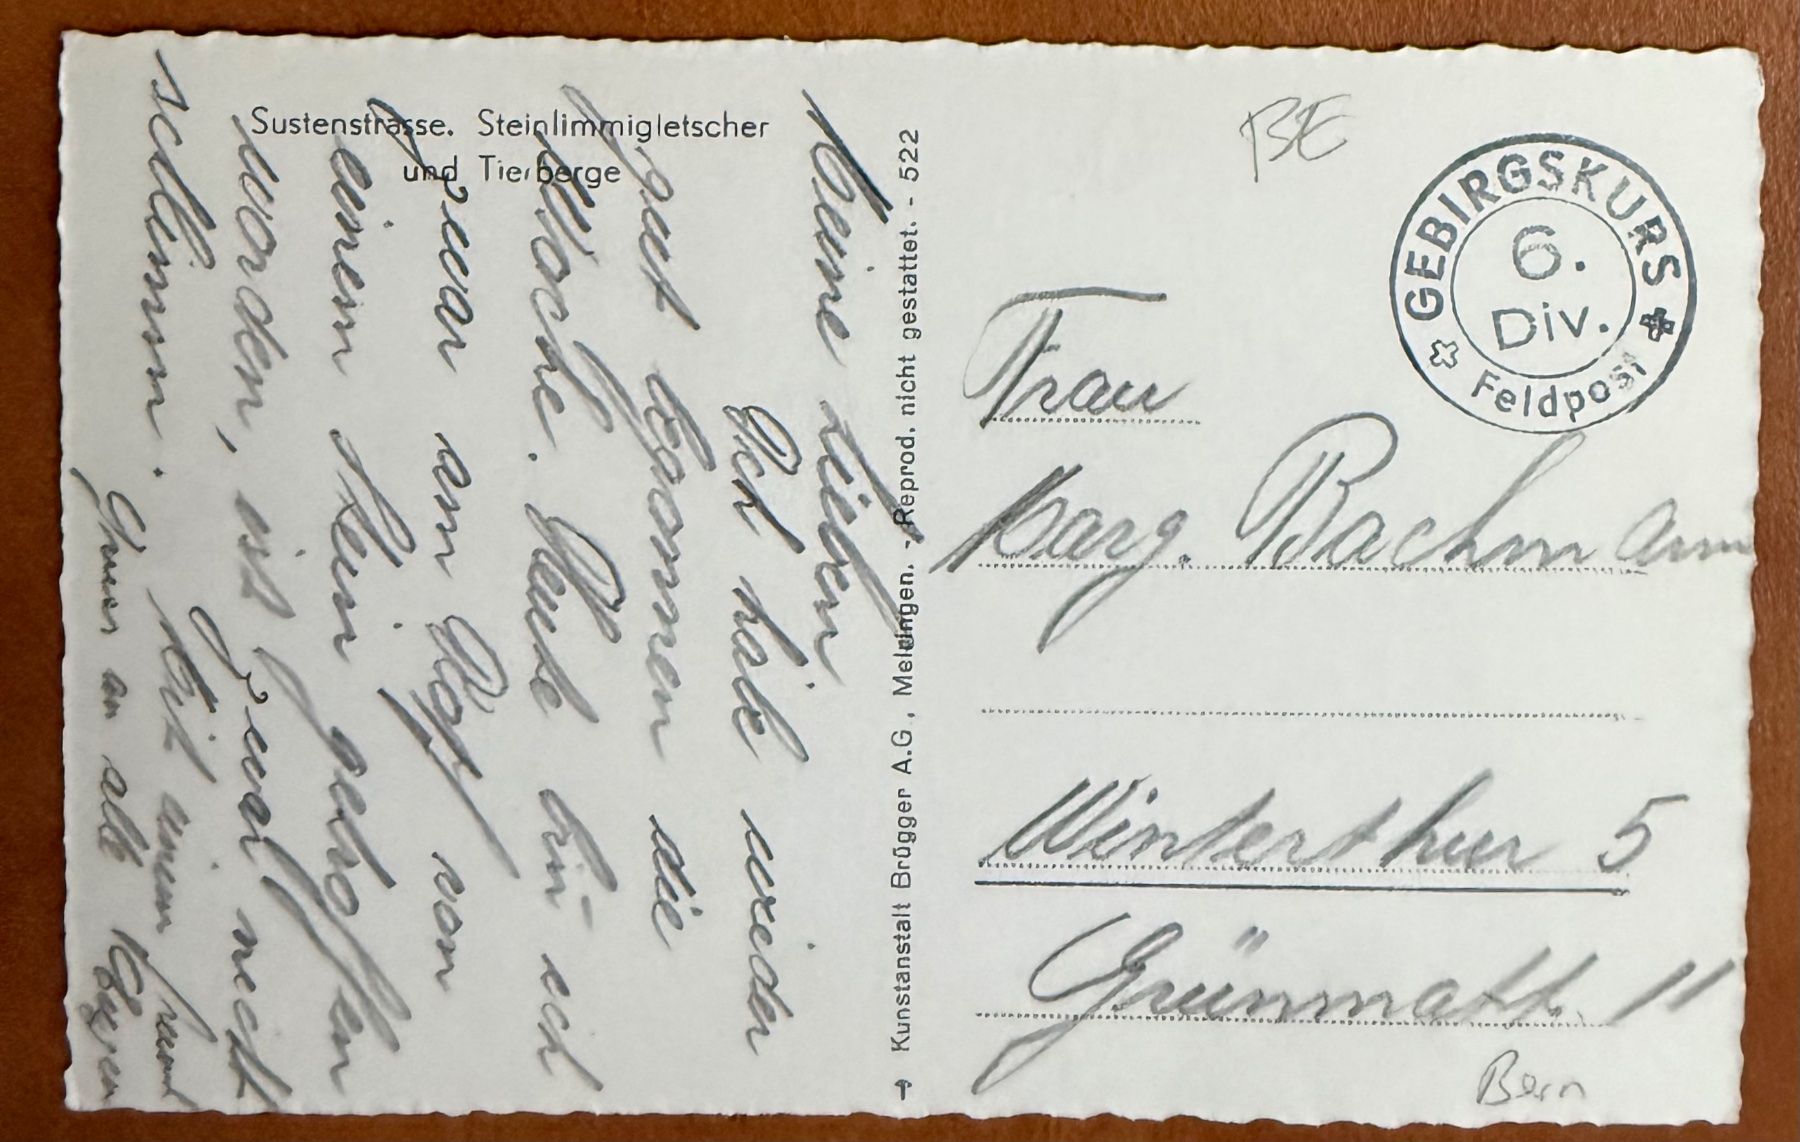 Sustenstrasse. Steinlimmigletscher
und Tierberge
Meine Lieben
Ich habe wieder
gut begonnen die
Woche. Heute bin ich
zwar am Kopf von
einem Stein getroffen
worden, ist zwar nicht
schlimm. Mit einem
Gruss an alle Eugen
→ Kunstanstalt Brügger A.G., Meiringen. - Reprod. nicht gestattet. - 522
BE
GEBIRGSKURS
6.
Div.
Feldpost
Frau
Marg. Bachmann
Winterthur 5
Grünmatt. 11
Bern